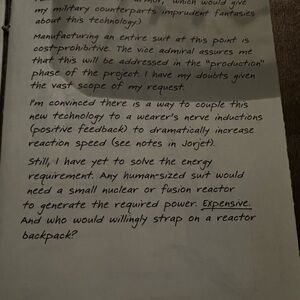 which would give
my military counterparts imprudent fantasies
about this technology)
Manufacturing an entire suit at this point is
cost-prohibitive. The vice admiral assures me
that this will be addressed in the "production"
phase of the project. I have my doubts given
the vast scope of my request.
I'm convinced there is a way to couple this
new technology to a wearer's nerve inductions
(positive feedback) to dramatically increase
reaction speed (see notes in Jorjet).
Still, I have yet to solve the energy
requirement. Any human-sized suit would
need a small nuclear or fusion reactor
to generate the required power. Expensive.
And who would willingly strap on a reactor
backpack?